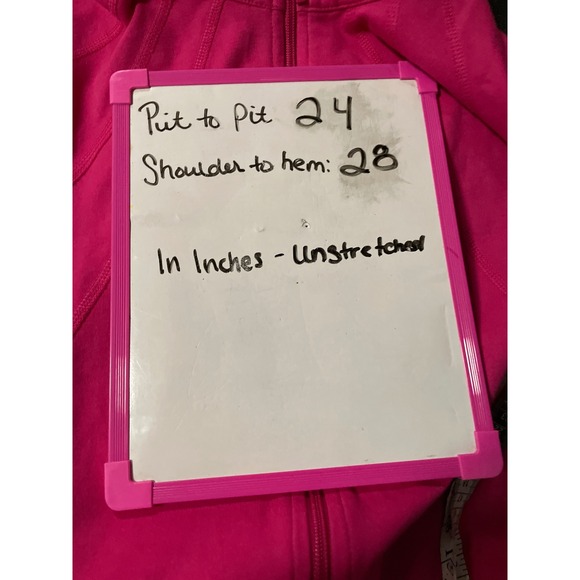 Pit to Pit 24
Shoulder to hem: 28
In Inches - Unstretched